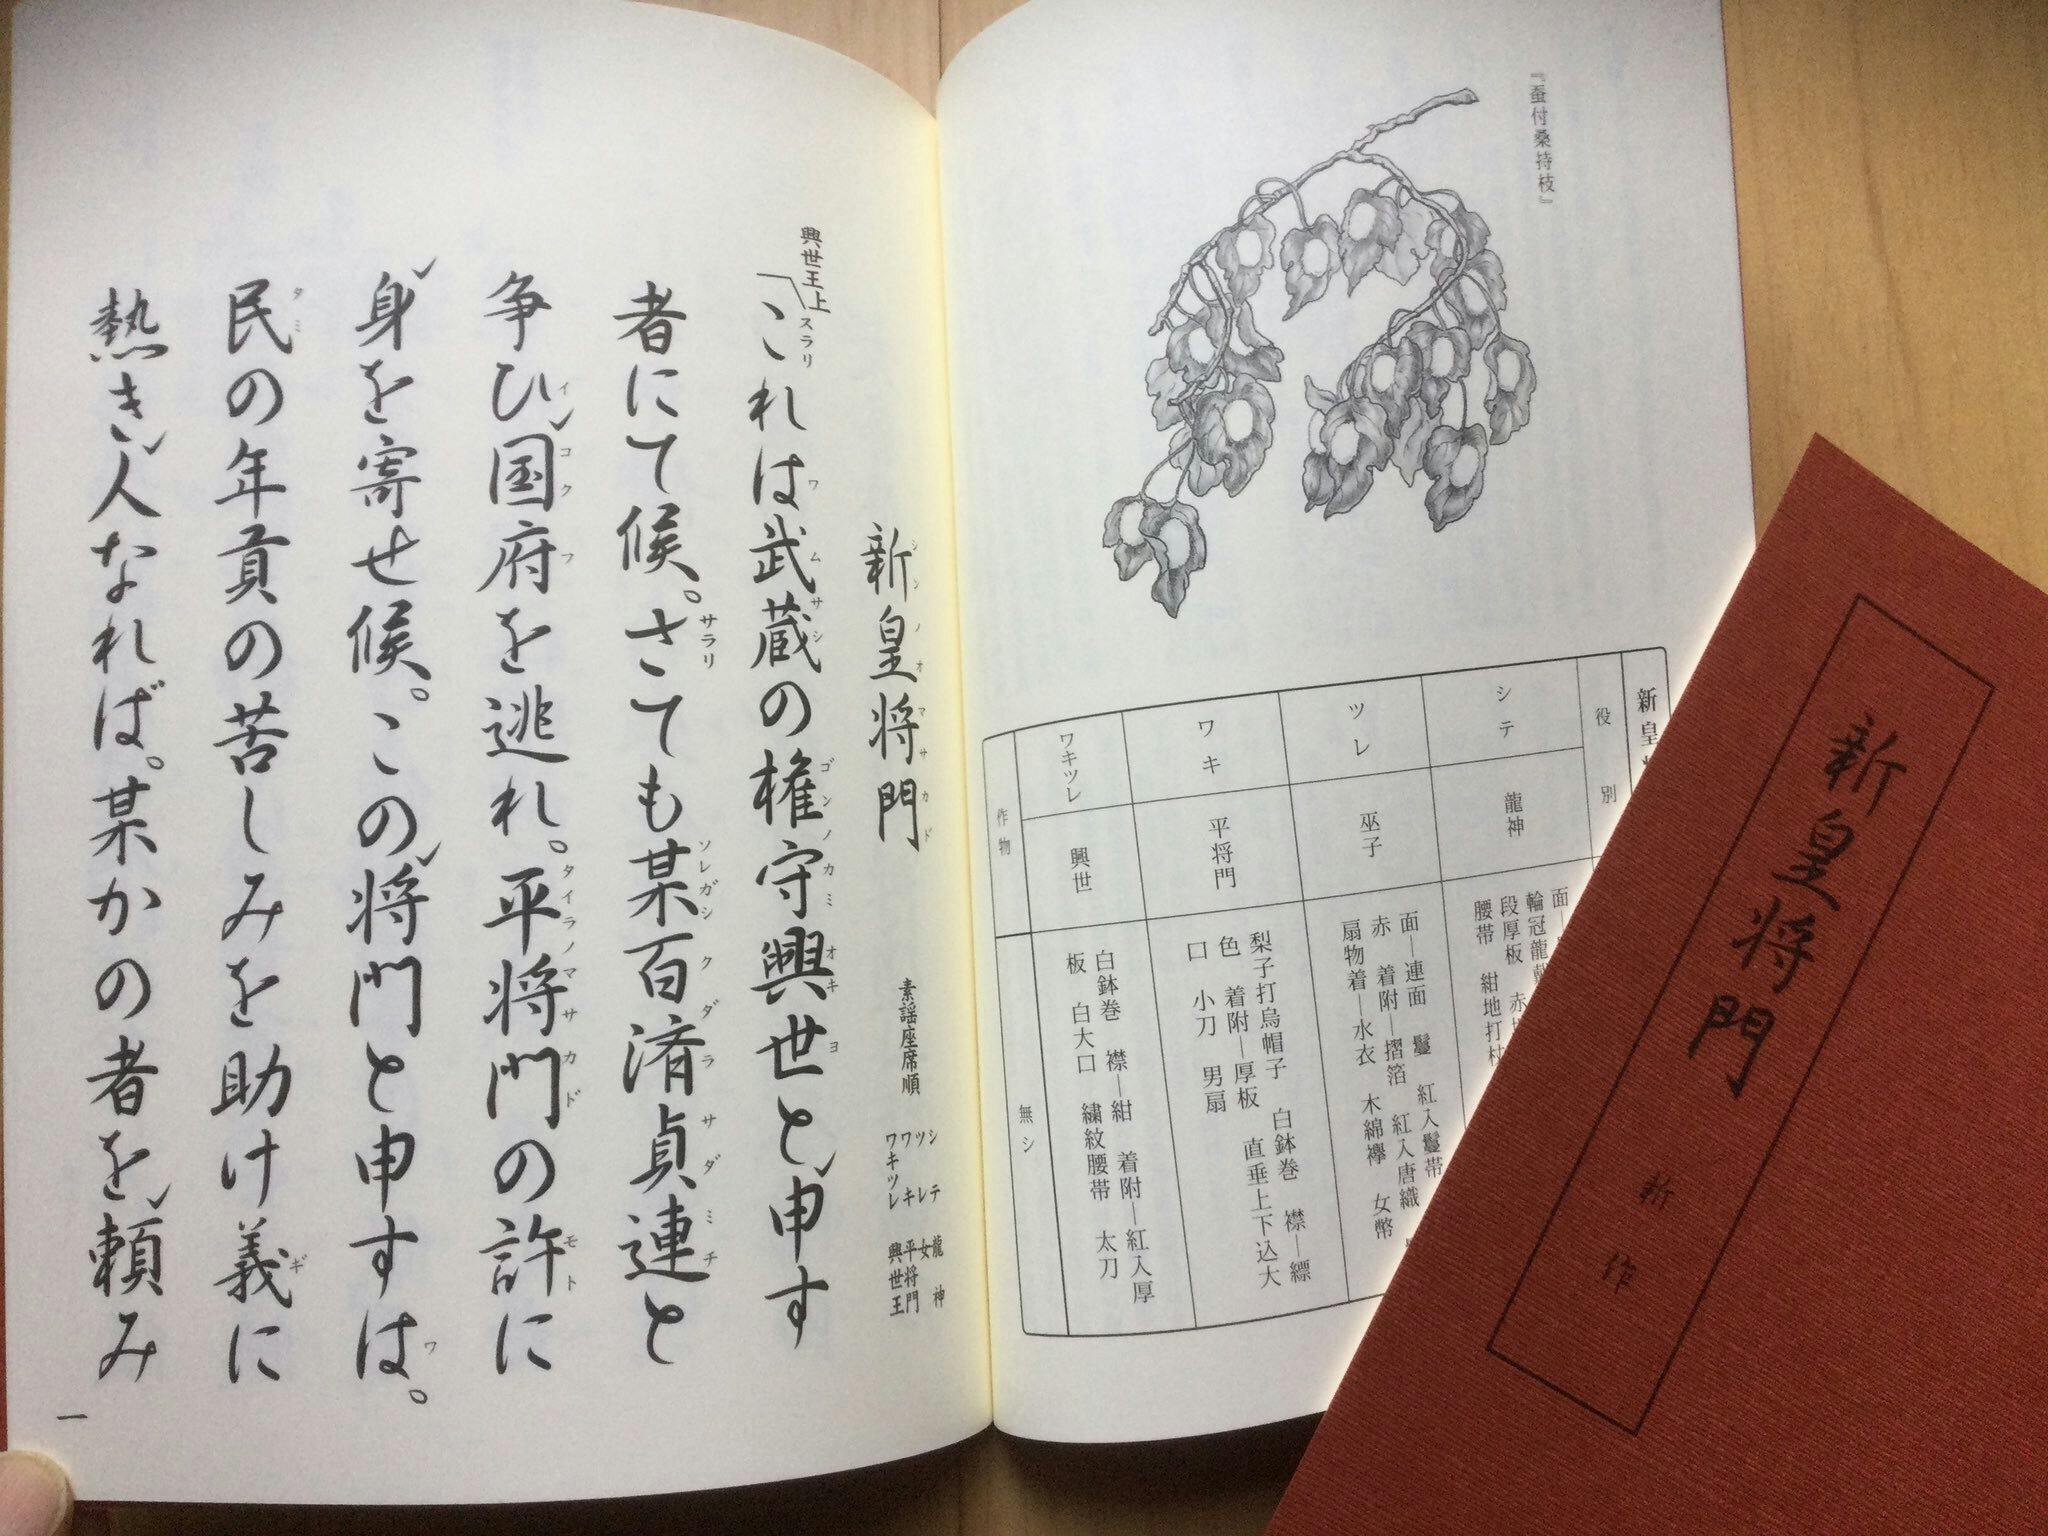 『蚕付桑持枝』
新皇
役別
シテ
龍神
面―
輪冠龍
段厚板 赤
腰帯 紺地打
ツレ
巫子
面―連面 鬘 紅入鬘帯
赤 着附―摺箔 紅入唐織
扇物着―水衣 木綿襷 女幣
ワキ
平将門
梨子打烏帽子 白鉢巻 襟―縹
色 着附―厚板 直垂上下込大
口 小刀 男扇
ワキツレ
興世
白鉢巻 襟―紺 着附―紅入厚
板 白大口 繍紋腰帯 太刀
作物
無シ
新皇将門
シンノオマサカド
素謡座席順
シテ 龍神
ツレ 女
ワキ 平将門
ワキツレ 興世王
興世王上
スラリ
これは武蔵の権守興世と申す
ワ ムサシ ゴンノカミ オキヨ
者にて候。さても某百済貞連と
サラリ ソレガシ クダラ サダミチ
争ひ国府を逃れ。平将門の許に
イ コクフ タイラノマサカド モト
身を寄せ候。この将門と申すは。
ワ
民の年貢の苦しみを助け義に
タミ ギ
熱き人なれば。某かの者を頼み
一
新皇将門
新作